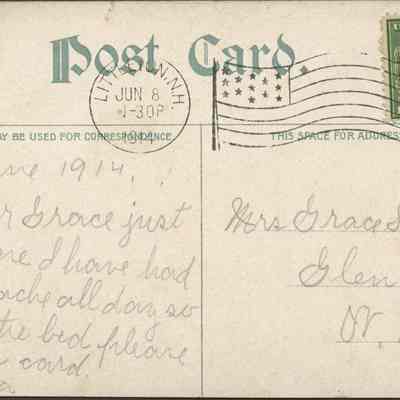 Post Card.
LITTLETON, N.H.
JUN 8
1-30P
1914
AY BE USED FOR CORRESPONDENCE
THIS SPACE FOR ADDRESS
une 1914.
r Grace just
ere I have had
ache all day so
the bed please
card
Mrs Grace
Glen
N.